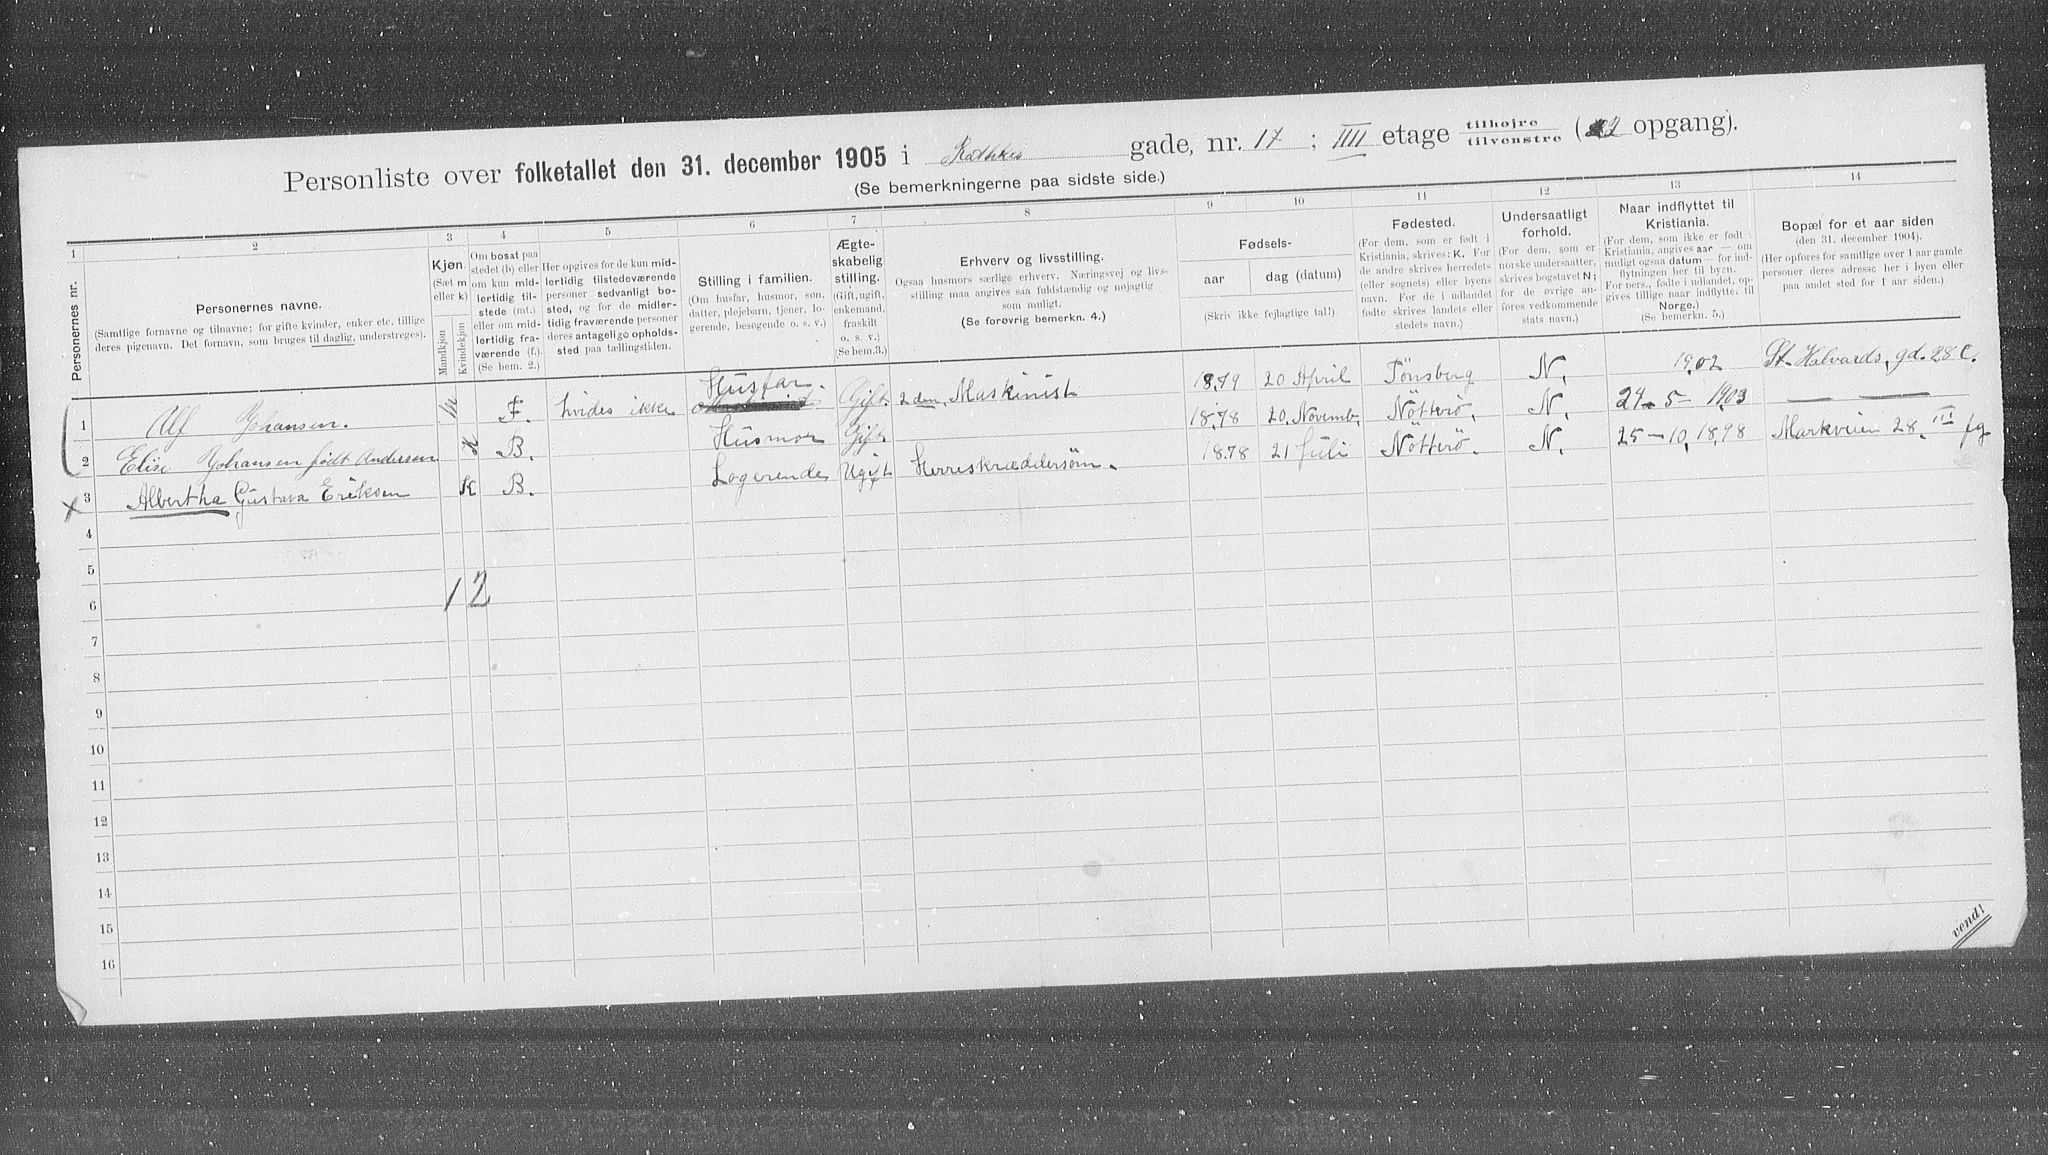 Personliste over folketallet den 31. december 1905 i Rathkes gade, nr. 17 ; IIII etage tilhøjre / tilvenstre (2 opgang).
(Se bemerkningerne paa sidste side.)
1 2 3 4 5 6 7 8 9 10 11 12 13 14
Personernes nr.
Personernes navne.
(Samtlige fornavne og tilnavne; for gifte kvinder, enker etc. tillige
deres pigenavn. Det fornavn, som bruges til daglig, understreges).
Kjøn.
(Sæt m
eller k)
Mandkjøn
Kvindekjøn
Om bosat paa
stedet (b) eller
om kun mid-
lertidig til-
stede (mt.)
eller om mid-
lertidig fra-
værende (f.).
(Se bem. 2.)
Her opgives for de kun mid-
lertidig tilstedeværende
personer sedvanligt bo-
sted, og for de midler-
tidig fraværende personer
deres antagelige opholds-
sted paa tællingstiden.
Stilling i familien.
(Om husfar, husmor, søn,
datter, plejebarn, tjener, lo-
gerende, besøgende o. s. v.)
Ægte-
skabelig
stilling.
(Gift, ugift,
enkemand,
fraskilt
o. s. v.)
(Se bem.3.)
Erhverv og livsstilling.
Ogsaa husmors særlige erhverv. Næringsvej og livs-
stilling maa angives saa fuldstændig og nøjagtig
som muligt.
(Se forøvrig bemerkn. 4.)
Fødsels-
aar dag (datum)
(Skriv ikke fejlagtige tal!)
Fødested.
(For dem, som er født i
Kristiania, skrives: K. For
de andre skrives herredets
(eller sognets) eller byens
navn. For de i udlandet
fødte skrives landets eller
stedets navn.)
Undersaatligt
forhold.
(For dem, som er
norske undersaatter,
skrives bogstavet N;
for de øvrige an-
føres vedkommende
stats navn.)
Naar indflyttet til
Kristiania.
(For dem, som ikke er født i
Kristiania, angives aar — om
muligt ogsaa datum — for ind-
flytningen her til byen.
For pers., fødte i udlandet, op-
gives tillige naar indflyttet til
Norge.)
(Se bemerkn. 5.)
Bopæl for et aar siden
(den 31. december 1904).
(Her opføres for samtlige over 1 aar gamle
personer deres adresse her i byen eller
paa andet sted for 1 aar siden.)
1 Alf Johansen. m F. hvides ikke Husfar. Gift 2den Maskinist 1879 20 April Tönsberg N. 1902 St. Halvards. gd. 28 C.
2 Elise Johansen født Andersen K B. Husmor Gift 1878 20. Novemb. Nötterö. N. 24-5-1903 — —
x 3 Albertha Gustava Eriksen K B. Logerende Ugift Herreskræddersøm. 1878 21 Juli Nötterö. N. 25-10. 1898 Markveien 28. III
4
5
6 1 2
7
8
9
10
11
12
13
14
15
16
vend!